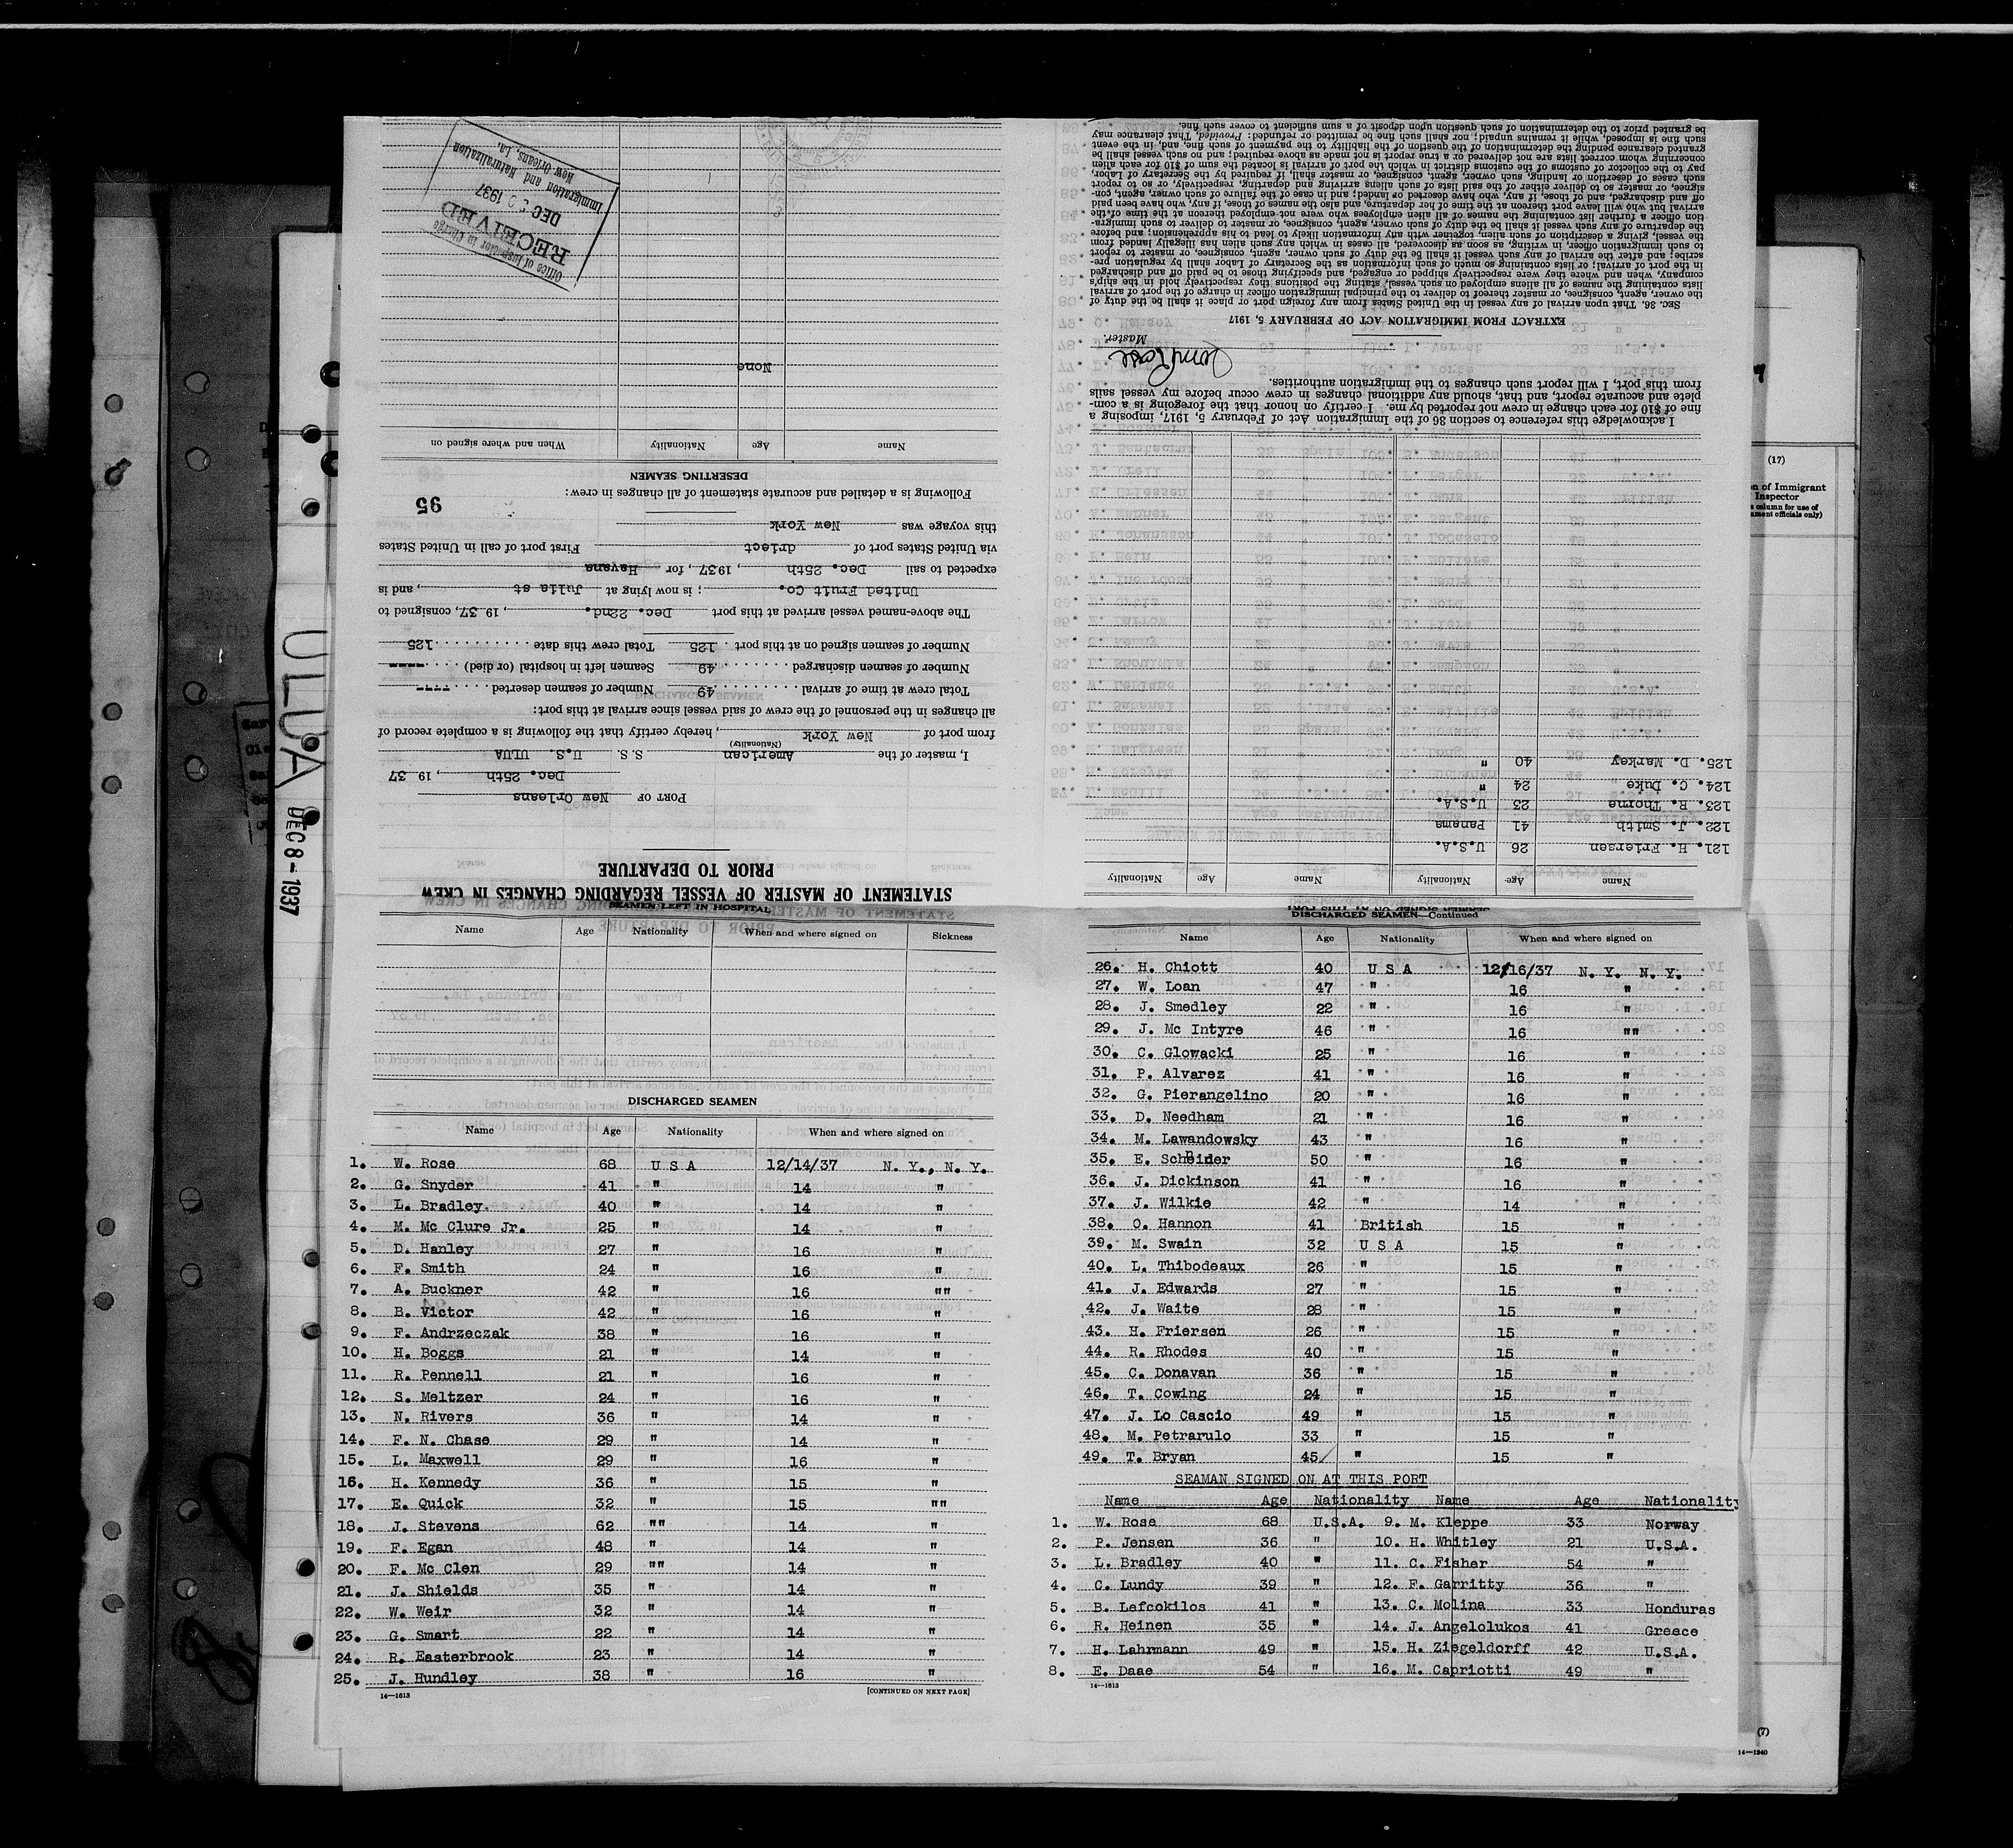 STATEMENT OF MASTER OF VESSEL REGARDING CHANGES IN CREW
PRIOR TO DEPARTURE
PORT OF New Orleans
Dec. 25th, 1937
I, master of the American S. S. U.S. ULUA
(Nationality)
from port of New York, hereby certify that the following is a complete record of
all changes in the personnel of the crew of said vessel since arrival at this port:
Total crew at time of arrival 49 Number of seamen deserted ----
Number of seamen discharged 49 Seamen left in hospital (or died) ----
Number of seamen signed on at this port 125 Total crew this date 125
The above-named vessel arrived at this port Dec. 22nd. , 19 37, consigned to
United Fruit Co. ; is now lying at Julia st , and is
expected to sail Dec. 25th , 1937 , for Havana
via United States port of driect First port of call in United States
this voyage was New York
95
Following is a detailed and accurate statement of all changes in crew:
DESERTING SEAMEN
Name Age Nationality When and where signed on
None
Office of Inspector in Charge
RECEIVED
DEC 1937
Immigration and Naturalization
New Orleans, La.
Name Age Nationality Name Age Nationality
121. H. Friersen 26 U.S.A.
122. J. Smith 41 Panama
123. R. Thorne 23 U.S.A.
124. C. Duke 24 "
125. D. Markey 40 "
I acknowledge this reference to section 36 of the Immigration Act of February 5, 1917, imposing a
fine of $10 for each change in crew not reported by me. I certify on honor that the foregoing is a com-
plete and accurate report, and that, should any additional changes in crew occur before my vessel sails
from this port, I will report such changes to the immigration authorities.
Master.
EXTRACT FROM IMMIGRATION ACT OF FEBRUARY 5, 1917
SEC. 36. That upon arrival of any vessel in the United States from any foreign port or place it shall be the duty of
the owner, agent, consignee, or master thereof to deliver to the principal immigration officer in charge of the port of arrival
lists containing the names of all aliens employed on such vessel, stating the positions they respectively hold in the ship's
company, when and where they were respectively shipped or engaged, and specifying those to be paid off and discharged
in the port of arrival; or lists containing so much of such information as the Secretary of Labor shall by regulation pre-
scribe; and after the arrival of any such vessel it shall be the duty of such owner, agent, consignee, or master to report
to such immigration officer, in writing, as soon as discovered, all cases in which any such alien has illegally landed from
the vessel, giving a description of such alien, together with any information likely to lead to his apprehension; and before
the departure of any such vessel it shall be the duty of such owner, agent, consignee, or master to deliver to such immigra-
tion officer a further list containing the names of all alien employees who were not employed thereon at the time of the
arrival but who will leave port thereon at the time of her departure, and also the names of those, if any, who have been paid
off and discharged, and of those, if any, who have deserted or landed; and in case of the failure of such owner, agent, con-
signee, or master so to deliver either of the said lists of such aliens arriving and departing, respectively, or so to report
such cases of desertion or landing, such owner, agent, consignee, or master, shall, if required by the Secretary of Labor,
pay to the collector of customs of the customs district in which the port of arrival is located the sum of $10 for each alien
concerning whom correct lists are not delivered or a true report is not made as above required; and no such vessel shall be
granted clearance pending the determination of the question of the liability to the payment of such fine, and, in the event
such fine is imposed, while it remains unpaid; nor shall such fine be remitted or refunded: Provided, That clearance may
be granted prior to the determination of such question upon deposit of a sum sufficient to cover such fine.
ULUA DEC 8 - 1937
(17)
n of Immigrant
Inspector
SEAMEN LEFT IN HOSPITAL
Name Age Nationality When and where signed on Sickness
DISCHARGED SEAMEN
Name Age Nationality When and where signed on
1. W. Rose 68 U S A 12/14/37 N. Y., N. Y.
2. G. Snyder 41 " 14 "
3. L. Bradley 40 " 14 "
4. M. Mc Clure Jr. 25 " 14 "
5. D. Hanley 27 " 16 "
6. F. Smith 24 " 16 "
7. A. Buckner 42 " 16 ""
8. B. Victor 42 " 16 "
9. F. Andrzeczak 38 " 16 "
10. H. Boggs 21 " 14 "
11. R. Pennell 21 " 16 "
12. S. Meltzer 24 " 16 "
13. N. Rivers 36 " 14 "
14. F. N. Chase 29 " 14 "
15. L. Maxwell 29 " 16 "
16. H. Kennedy 36 " 15 "
17. E. Quick 32 " 15 ""
18. J. Stevens 62 "" 14 "
19. F. Egan 48 " 14 "
20. F. Mc Clen 29 "" 14 "
21. J. Shields 35 " 14 "
22. W. Weir 32 " 14 "
23. G. Smart 22 " 14 "
24. R. Easterbrook 23 " 14 "
25. J. Hundley 38 " 16 "
14—1613 [CONTINUED ON NEXT PAGE]
DISCHARGED SEAMEN—Continued
Name Age Nationality When and where signed on
26. H. Chiott 40 U S A 12/16/37 N. Y. N. Y.
27. W. Loan 47 " 16 "
28. J. Smedley 22 " 16 "
29. J. Mc Intyre 46 " 16 ""
30. C. Glowacki 25 " 16 "
31. P. Alvarez 41 " 16 "
32. G. Pierangelino 20 " 16 "
33. D. Needham 21 " 16 "
34. M. Lawandowsky 43 " 16 "
35. E. Schneider 50 " 16 "
36. J. Dickinson 41 " 16 "
37. J. Wilkie 42 " 14 "
38. O. Hannon 41 British 15 "
39. M. Swain 32 U S A 15 "
40. L. Thibodeaux 26 " 15 "
41. J. Edwards 27 " 15 "
42. J. Waite 28 " 15 "
43. H. Friersen 26 " 15 "
44. R. Rhodes 40 " 15 "
45. C. Donavan 36 " 15 "
46. T. Cowing 24 " 15 "
47. J. Lo Cascio 49 " 15 "
48. M. Petrarulo 33 " 15 "
49. T. Bryan 45 " 15 "
SEAMAN SIGNED ON AT THIS PORT
Name Age Nationality Name Age Nationality
1. W. Rose 68 U.S.A. 9. M. Kleppe 33 Norway
2. P. Jensen 36 " 10. H. Whitley 21 U.S.A.
3. L. Bradley 40 " 11. C. Fisher 54 "
4. C. Lundy 39 " 12. F. Garritty 36 "
5. B. Lefcokilos 41 " 13. C. Molina 33 Honduras
6. R. Heinen 35 " 14. J. Angelolukos 41 Greece
7. H. Lahrmann 49 " 15. H. Ziegeldorff 42 U.S.A.
8. E. Daae 54 " 16. M. Capriotti 49 "
14—1613
(7)
14—1240